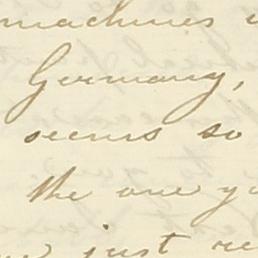 machines
Germany,
seems so
the one yo
just re